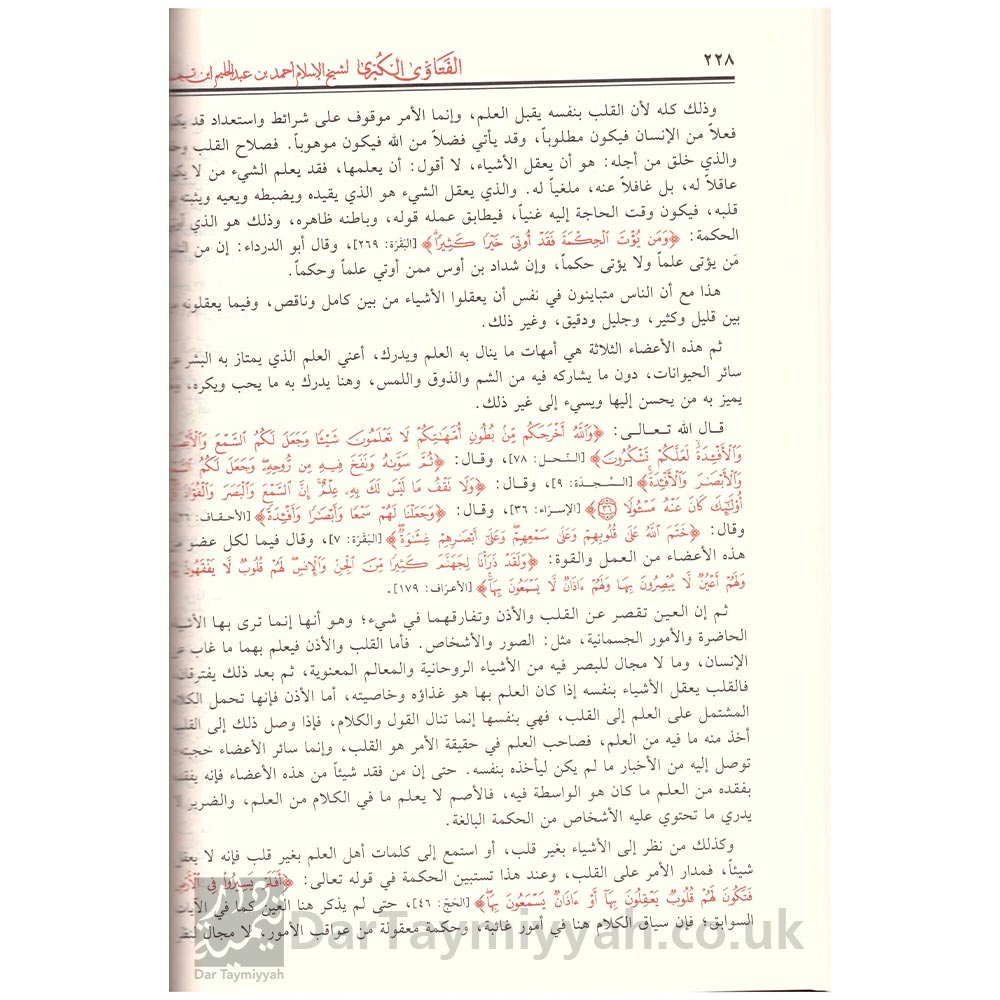 ٢٢٨
الفَتَاوَىٰ الكُبْرَىٰ لشيخ الإسلام أحمد بن عبد الحليم ابن
وذلك كله لأن القلب بنفسه يقبل العلم، وإنما الأمر موقوف على شرائط واستعداد قد
فعلاً من الإنسان فيكون مطلوباً، وقد يأتي فضلاً من الله فيكون موهوباً. فصلاح القلب
والذي خلق من أجله: هو أن يعقل الأشياء، لا أقول: أن يعلمها، فقد يعلم الشيء من لا
عاقلاً له، بل غافلاً عنه، ملغياً له. والذي يعقل الشيء هو الذي يقيده ويضبطه ويعيه ويثبته
قلبه، فيكون وقت الحاجة إليه غنياً، فيطابق عمله قوله، وباطنه ظاهره، وذلك هو الذي
الحكمة: ﴿وَمَن يُؤْتَ الْحِكْمَةَ فَقَدْ أُوتِيَ خَيْرًا كَثِيرًا﴾ [البَقَرَة: ٢٦٩]، وقال أبو الدرداء: إن من
مَن يؤتى علماً ولا يؤتى حكماً، وإن شداد بن أوس ممن أوتي علماً وحكماً.
هذا مع أن الناس متباينون في نفس أن يعقلوا الأشياء من بين كامل وناقص، وفيما يعقلونه
بين قليل وكثير، وجليل ودقيق، وغير ذلك.
ثم هذه الأعضاء الثلاثة هي أمهات ما ينال به العلم ويدرك، أعني العلم الذي يمتاز به البشر
سائر الحيوانات، دون ما يشاركه فيه من الشم والذوق واللمس، وهنا يدرك به ما يحب ويكره،
يميز به من يحسن إليها ويسيء إلى غير ذلك.
قال الله تعالى: ﴿وَاللَّهُ أَخْرَجَكُم مِّنْ بُطُونِ أُمَّهَاتِكُمْ لَا تَعْلَمُونَ شَيْئًا وَجَعَلَ لَكُمُ السَّمْعَ
وَالْأَفْئِدَةَ لَعَلَّكُمْ تَشْكُرُونَ﴾ [النّحل: ٧٨]، وقال: ﴿ثُمَّ سَوَّاهُ وَنَفَخَ فِيهِ مِن رُّوحِهِ وَجَعَلَ لَكُمُ
وَالْأَبْصَارَ وَالْأَفْئِدَةَ﴾ [السَّجدَة: ٩]، وقال: ﴿وَلَا تَقْفُ مَا لَيْسَ لَكَ بِهِ عِلْمٌ إِنَّ السَّمْعَ وَالْبَصَرَ وَالْفُؤَادَ
أُولَٰئِكَ كَانَ عَنْهُ مَسْئُولًا ٣٦﴾ [الإسرَاء: ٣٦]، وقال: ﴿وَجَعَلْنَا لَهُمْ سَمْعًا وَأَبْصَارًا وَأَفْئِدَةً﴾ [الأحقاف:
وقال: ﴿خَتَمَ اللَّهُ عَلَىٰ قُلُوبِهِمْ وَعَلَىٰ سَمْعِهِمْ وَعَلَىٰ أَبْصَارِهِمْ غِشَاوَةٌ﴾ [البَقَرَة: ٧]، وقال فيما لكل عضو
هذه الأعضاء من العمل والقوة: ﴿وَلَقَدْ ذَرَأْنَا لِجَهَنَّمَ كَثِيرًا مِّنَ الْجِنِّ وَالْإِنسِ لَهُمْ قُلُوبٌ لَّا يَفْقَهُونَ
وَلَهُمْ أَعْيُنٌ لَّا يُبْصِرُونَ بِهَا وَلَهُمْ ءَاذَانٌ لَّا يَسْمَعُونَ بِهَا﴾ [الأعرَاف: ١٧٩].
ثم إن العين تقصر عن القلب والأذن وتفارقهما في شيء؛ وهو أنها إنما ترى بها
الحاضرة والأمور الجسمانية، مثل: الصور والأشخاص. فأما القلب والأذن فيعلم بهما ما غاب
الإنسان، وما لا مجال للبصر فيه من الأشياء الروحانية والمعالم المعنوية، ثم بعد ذلك
فالقلب يعقل الأشياء بنفسه إذا كان العلم بها هو غذاؤه وخاصيته، أما الأذن فإنها تحمل
المشتمل على العلم إلى القلب، فهي بنفسها إنما تنال القول والكلام، فإذا وصل ذلك إلى
أخذ منه ما فيه من العلم، فصاحب العلم في حقيقة الأمر هو القلب، وإنما سائر الأعضاء
توصل إليه من الأخبار ما لم يكن ليأخذه بنفسه. حتى إن من فقد شيئاً من هذه الأعضاء فإنه
بفقده من العلم ما كان هو الواسطة فيه، فالأصم لا يعلم ما في الكلام من العلم، والضرير لا
يدري ما تحتوي عليه الأشخاص من الحكمة البالغة.
وكذلك من نظر إلى الأشياء بغير قلب، أو استمع إلى كلمات أهل العلم بغير قلب فإنه لا
شيئاً، فمدار الأمر على القلب، وعند هذا تستبين الحكمة في قوله تعالى: ﴿أَفَلَمْ يَسِيرُوا فِي
فَتَكُونَ لَهُمْ قُلُوبٌ يَعْقِلُونَ بِهَا أَوْ ءَاذَانٌ يَسْمَعُونَ بِهَا﴾ [الحَجّ: ٤٦]، حتى لم يذكر هنا العين كما في
السوابق؛ فإن سياق الكلام هنا في أمور غائبة، وحكمة معقولة من عواقب الأمور، لا مجال
DarTaymiyyah.co.uk
Dar Taymiyyah